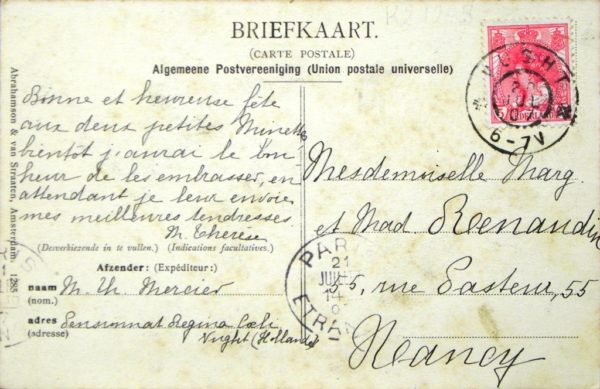 BRIEFKAART.
(CARTE POSTALE)
Algemeene Postvereeniging (Union postale universelle)
Bonne et heureuse fête
aux deux petites Minettes
bientôt j'aurai le bon
heur de les embrasser, en
attendant je leur envoie
mes meilleures tendresses
M. Thérèse
(Desverkiezende in te vullen.) (Indications facultatives.)
Afzender: (Expéditeur:)
naam M. Th. Mercier
(nom.)
adres Pensionnat Regina Cœli
(adresse) Vught (Hollande)
Abrahamson & van Straaten, Amsterdam.
VUGHT
6-7V
Mesdemoiselle Marg.
et Mad Renaudin
55, rue Pasteur, 55
Nancy
PAR
21
ETR